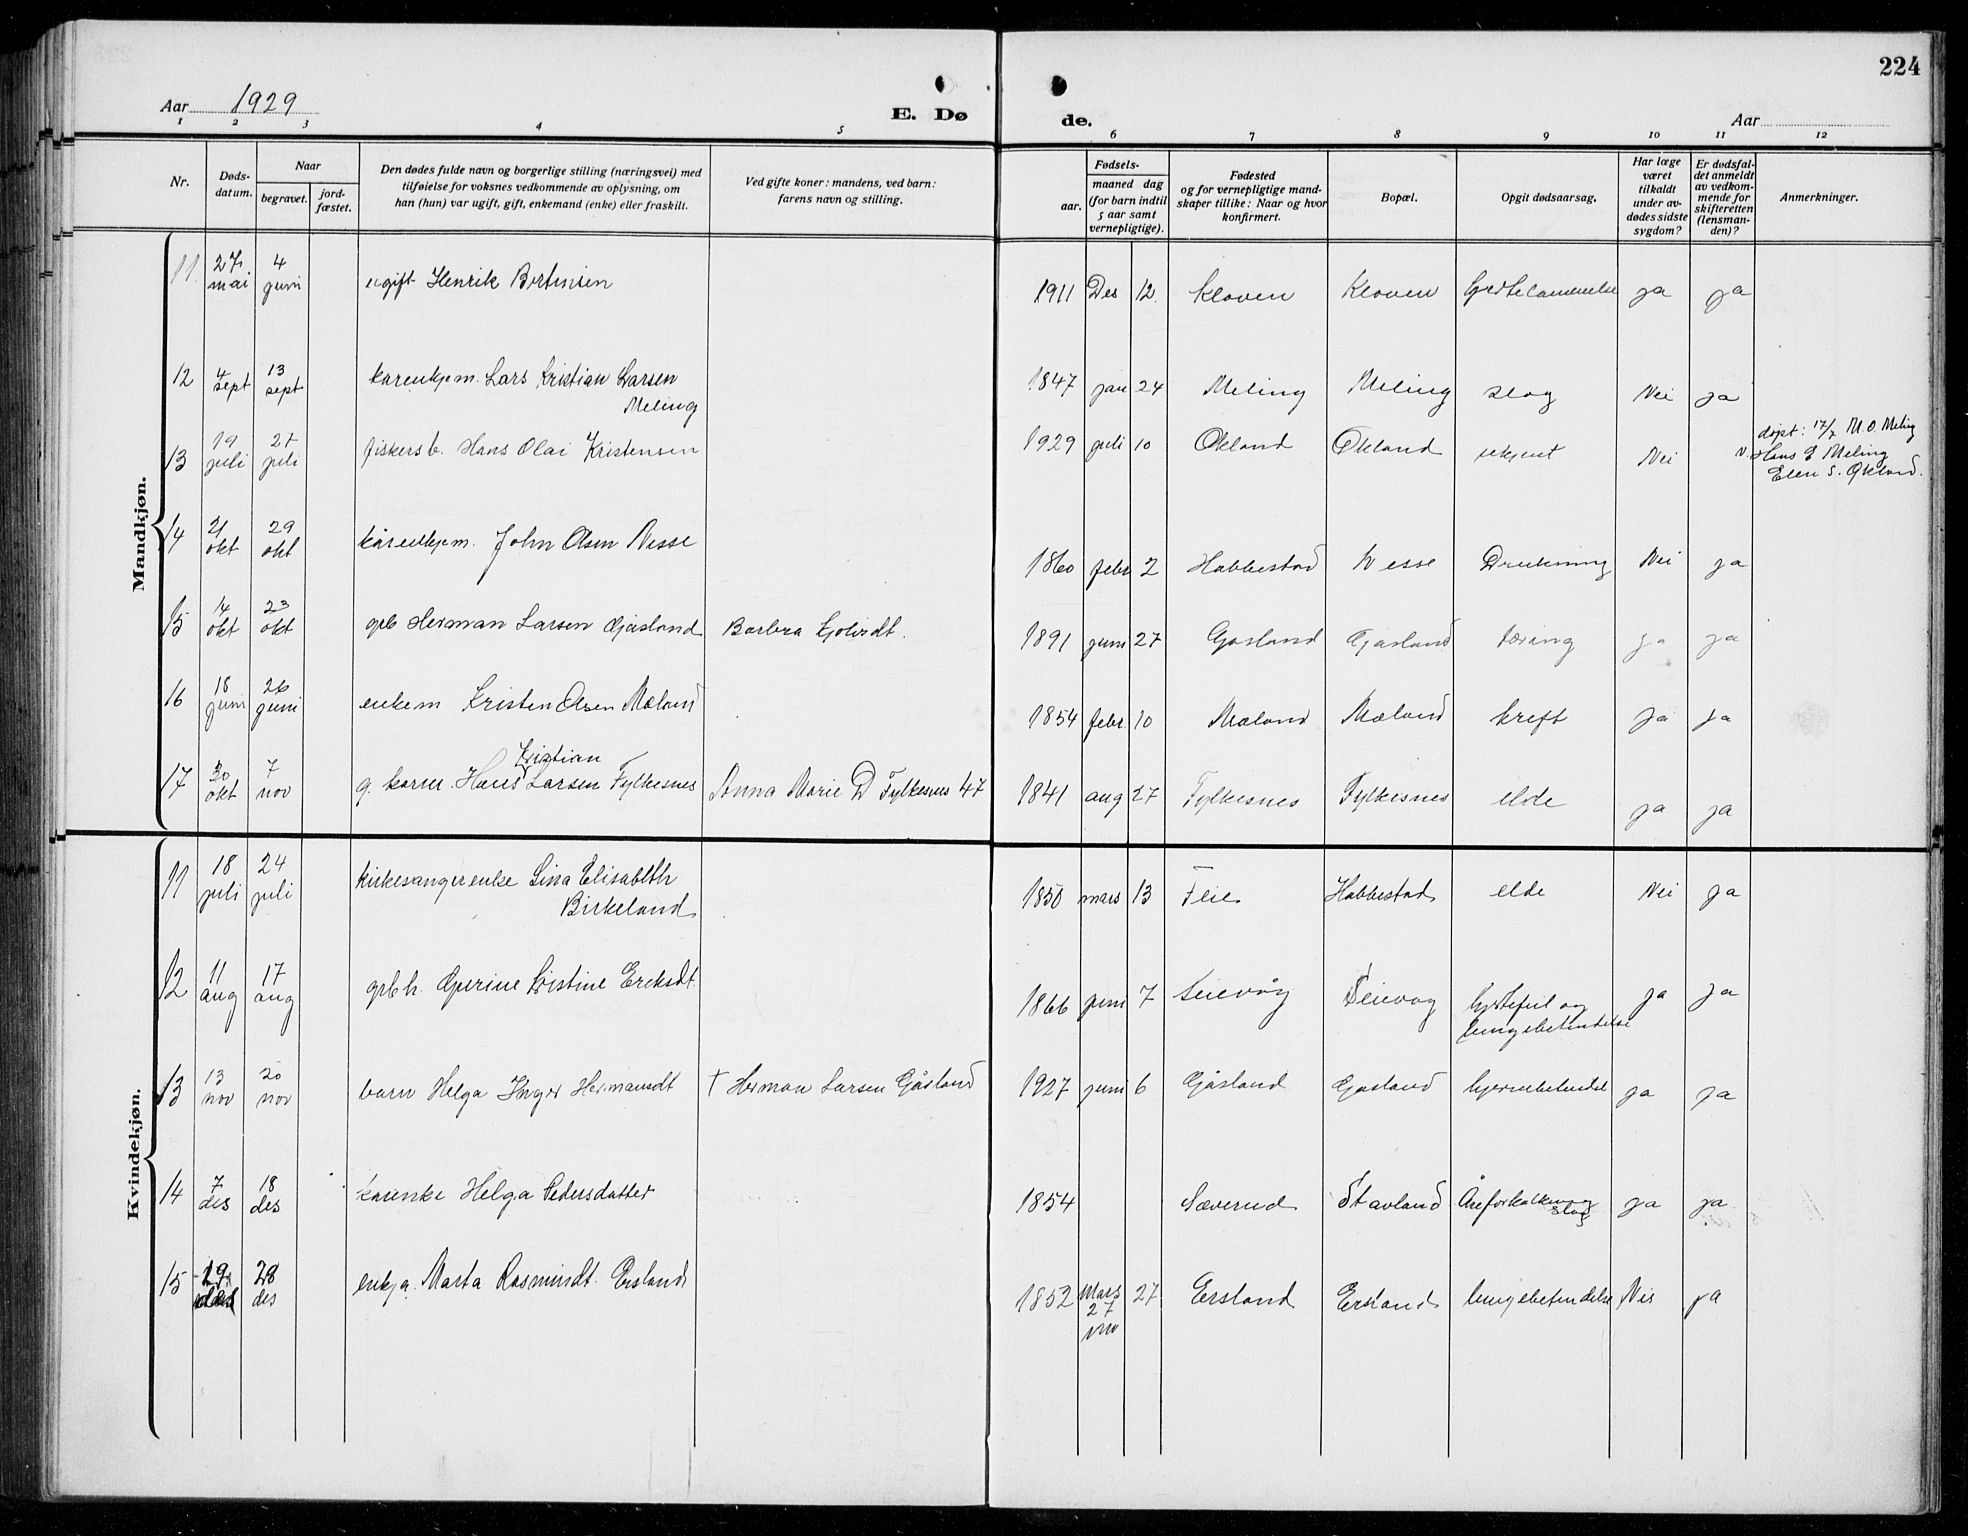 224
Aar 1929
E. Dø
de.
Aar
1 2 3 4 5 6 7 8 9 10 11 12
Nr.
Døds-
datum.
Naar
begravet.
jord-
fæstet.
Den dødes fulde navn og borgerlige stilling (næringsvei) med
tilføielse for voksnes vedkommende av oplysning, om
han (hun) var ugift, gift, enkemand (enke) eller fraskilt.
Ved gifte koner: mandens, ved barn:
farens navn og stilling.
Fødsels-
aar.
maaned dag
(for barn indtil
5 aar samt
vernepligtige).
Fødested
og for vernepligtige mand-
skaper tillike: Naar og hvor
konfirmert.
Bopæl.
Opgit dødsaarsag.
Har læge
været
tilkaldt
under av-
dødes sidste
sygdom?
Er dødsfal-
det anmeldt
av vedkom-
mende for
skifteretten
(lensman-
den)?
Anmerkninger.
Mandkjøn.
11 27 mai 4 juni ugift Henrik 1911 Des 12 Kloven Kloven ja ja
12 4 sept 13 sept Lars Kristian Larsen
Meling 1847 jan 24 Meling Meling slag Nei ja
13 19 juli 27 juli fiskers b. Hans Olai Kristensen 1929 juli 10 Økland Økland ukjent Nei
døpt: 17/7 M. O. Meling
Hans E Meling
Elen S. Økland.
14 21 okt 29 okt kårenkjem. John Olsen Nesse 1860 febr 2 Habbestad Nesse Drukning Nei ja
15 14 okt 23 okt grb Herman Larsen Gjåsland Barbra 1891 juni 27 Gjåsland Gjåsland tæring ja ja
16 18 juni 26 juni enkem Kristen Olsen Mæland 1854 febr 10 Mæland Mæland kreft ja ja
Kristian
17 30 okt 7 nov g. karm. Hans Larsen Fylkesnes Anna Marie D Fylkesnes 47 1841 aug 27 Fylkesnes Fylkesnes elde ja ja
Kvindekjøn.
11 18 juli 24 juli kirkesangerenke Lina Elisabeth
Birkeland 1850 mars 13 Habbestad elde Nei ja
12 11 aug 17 aug Gurine Kristine Eriksdt. 1866 juni 7 Leievåg Leievåg hjertefeil og
lungebetendelse ja ja
13 13 nov 20 nov barn Helga Inger Hermansdt † Herman Larsen Gjåsland 1927 juni 6 Gjåsland Gjåsland ja ja
14 7 des 18 des kårenke Helga Pedersdatter 1854 Sæverud Stavland Åreforkalkning
slag ja ja
15 19 28 des enkja Marta Rasmusdt. Ersland 1852 Mars 27
27 Ersland Ersland lungebetendelse Nei ja